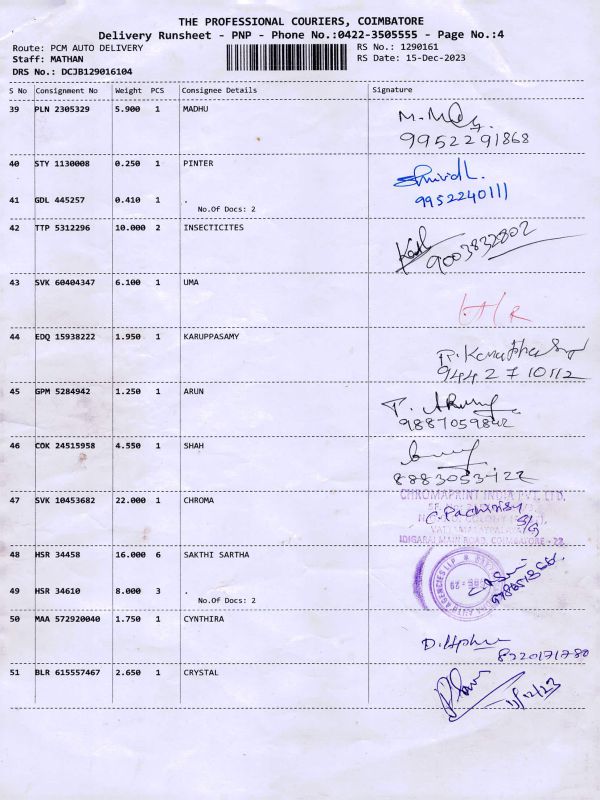 THE PROFESSIONAL COURIERS, COIMBATORE
Delivery Runsheet - PNP - Phone No.:0422-3505555 - Page No.:4
Route: PCM AUTO DELIVERY RS No.: 1290161
Staff: MATHAN RS Date: 15-Dec-2023
DRS No.: DCJB129016104
S No Consignment No Weight PCS Consignee Details Signature
39 PLN 2305329 5.900 1 MADHU
9952291868
40 STY 1130008 0.250 1 PINTER
9952240111
41 GDL 445257 0.410 1 .
No.Of Docs: 2
42 TTP 5312296 10.000 2 INSECTICITES
9003832802
43 SVK 60404347 6.100 1 UMA
44 EDQ 15938222 1.950 1 KARUPPASAMY
9442710112
45 GPM 5284942 1.250 1 ARUN
9887059842
46 COK 24515958 4.550 1 SHAH
8883053422
47 SVK 10453682 22.000 1 CHROMA
CHROMAPRINT INDIA PVT. LTD.
IDIGARAI MAIN ROAD, COIMBATORE - 22.
48 HSR 34458 16.000 6 SAKTHI SARTHA
49 HSR 34610 8.000 3 .
No.Of Docs: 2
50 MAA 572920040 1.750 1 CYNTHIRA
8220171780
51 BLR 615557467 2.650 1 CRYSTAL